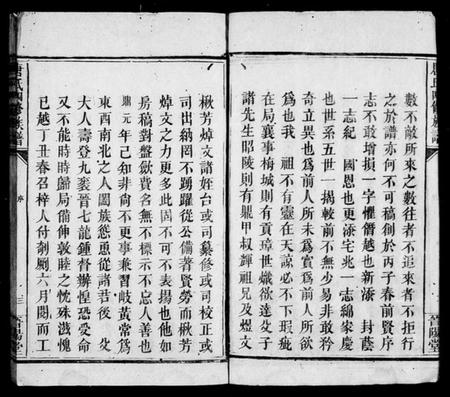 唐氏四修族譜
數不敵所來之數往者不追來者不拒行
之於譜亦何不可稿創於丙子春前賢序
志不敢增損一字懼僭越也新添 封藎
一志紀 國恩也更添宅兆一志綿家慶
也世系五世一揭較前不無少易非敢矜
奇立異也爲前人所未爲實爲前人所欲
爲也我 祖不有靈在天諒必不下瑕疵
在局襄事梅城則有貢璋世熾欲達殳子
諸先生昭陵則有颺甲叔輝祖兄及煜文
楸芳焯文諸姪台或司纂修或司校正或
司出納罔不踴躍從公備著賢勞而楸芳
焯文之力更多此固不可不表揚也他如
房稿對盤歛費名無不標示不忘人善也
鼎元年已知非尚不更事兼習岐黃常爲
東西南北之人闔族慫恿從諸君後 父
大人壽登九袠晉七龍鍾督辦惶恐受命
又不能時時歸局備伸敦睦之忱殊滋愧
已越丁丑春召梓人付剞劂六月閱而工
唐氏四修族譜
序
三
晉陽堂